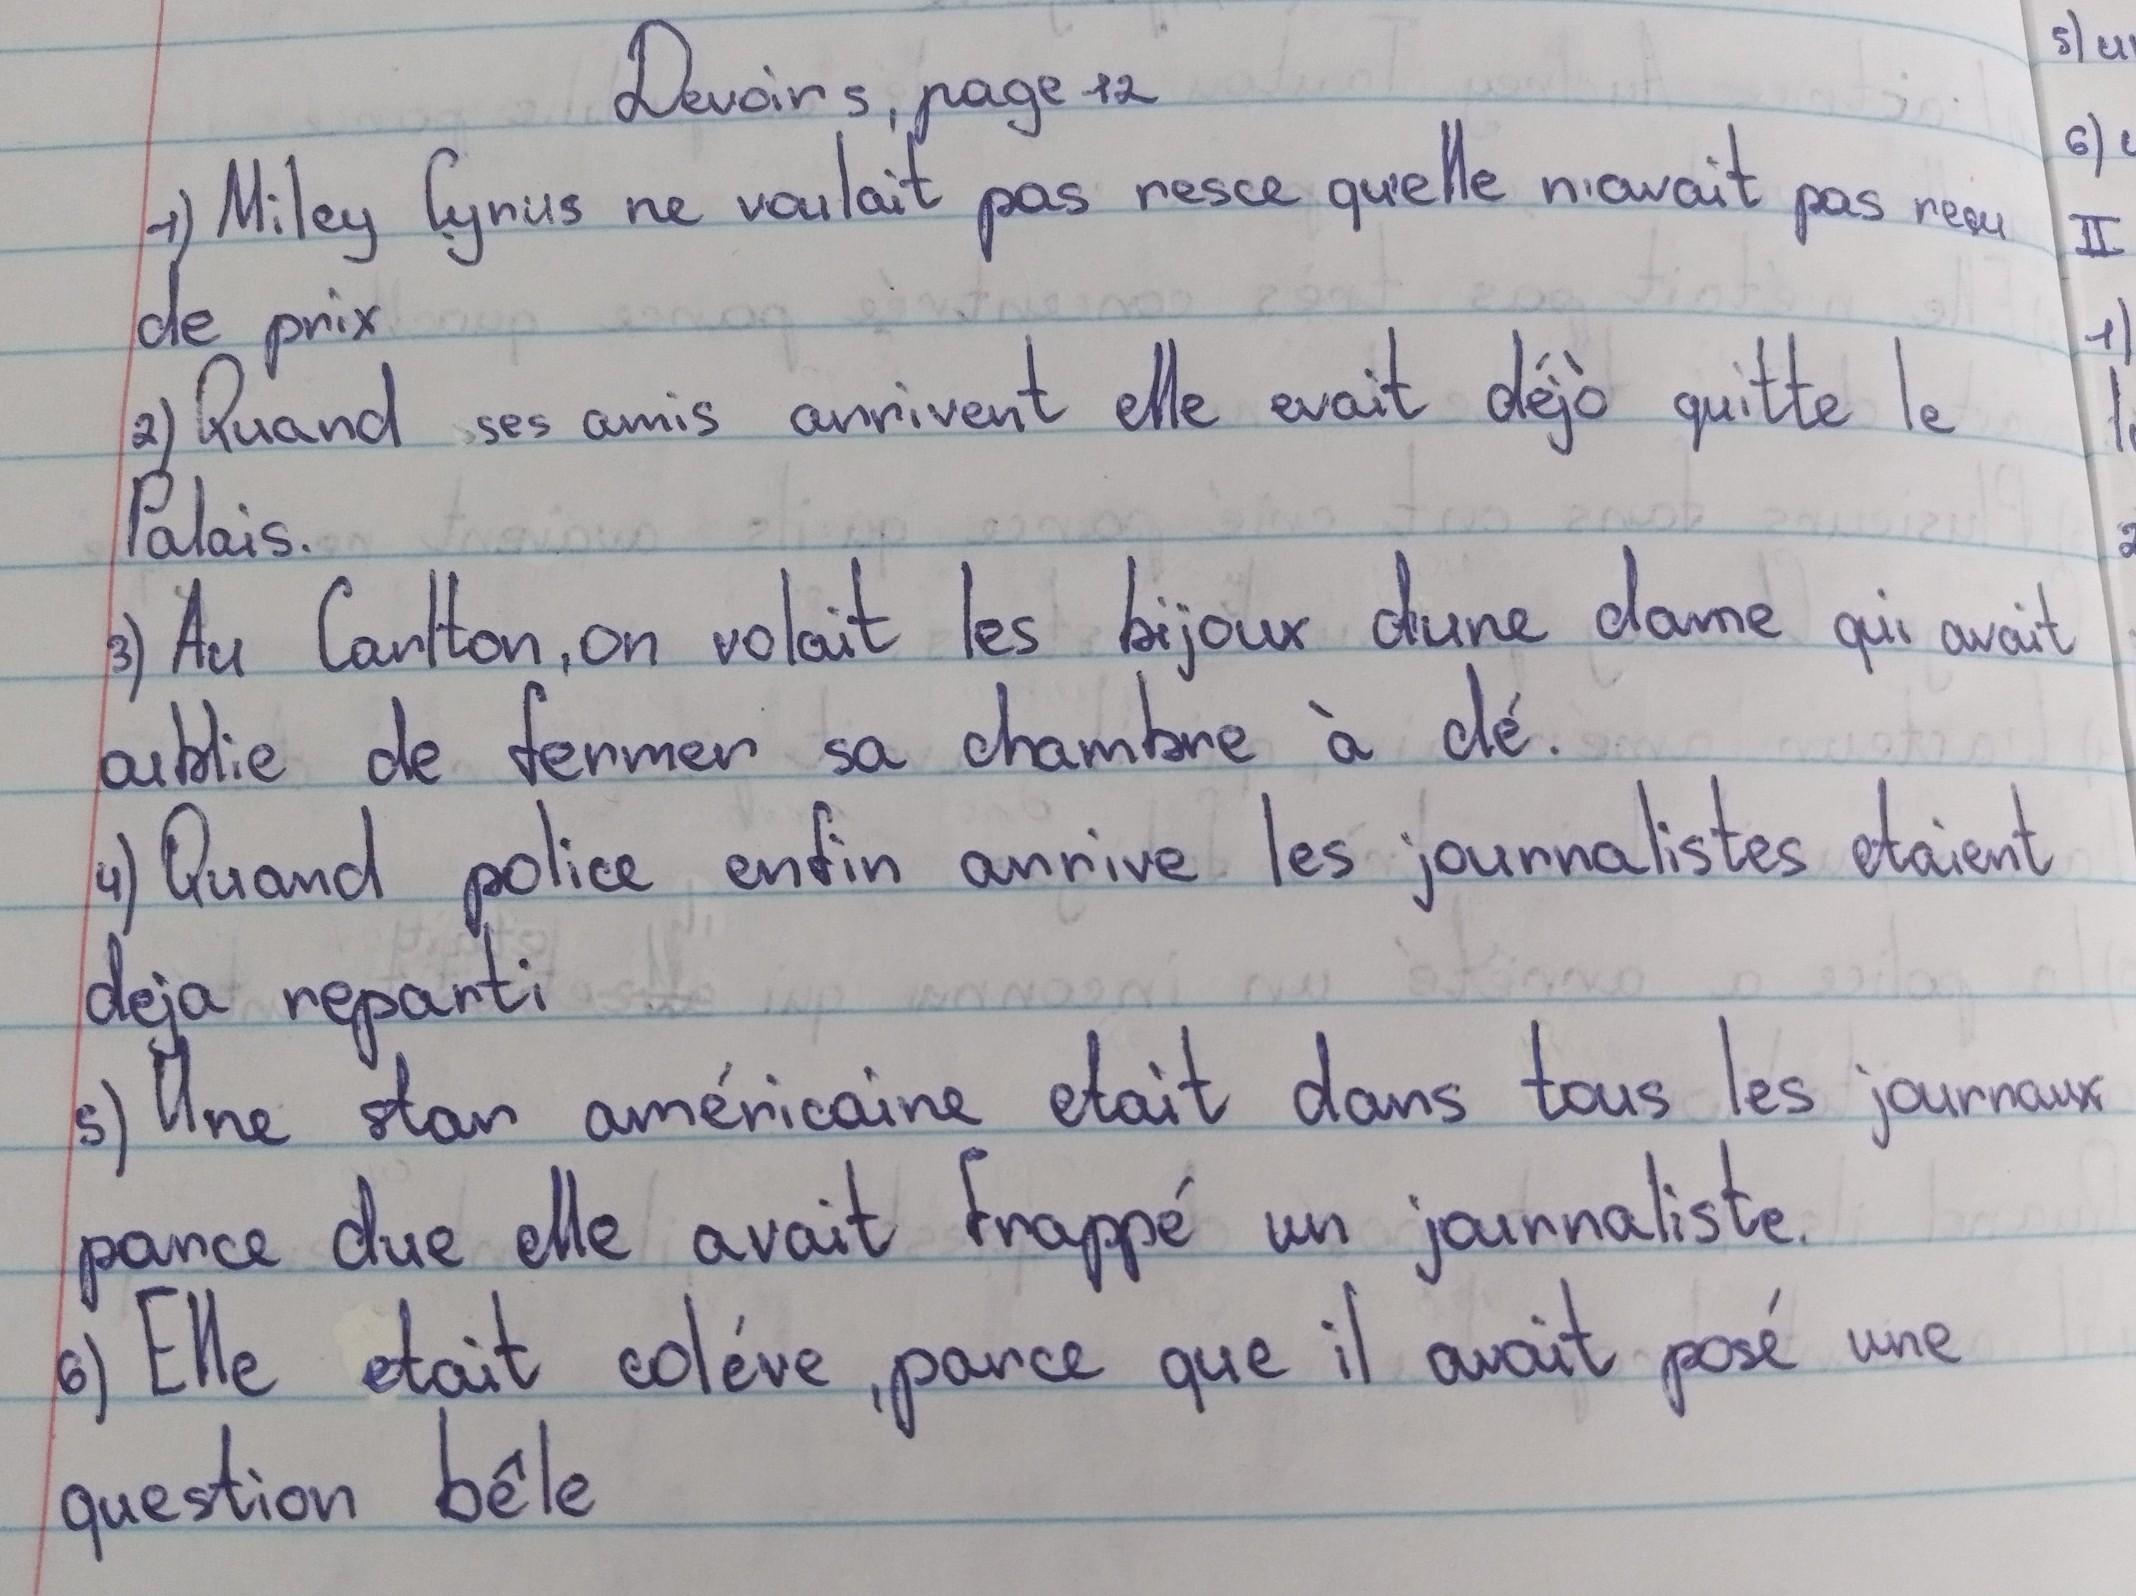 Devoirs, page 12
1) Miley Cyrus ne voulait pas resce qu'elle n'avait pas reçu
de prix
2) Quand ses amis arrivent elle evait déjò quitte le
Palais.
3) Au Carlton, on volait les bijoux d'une dame qui avait
oublie de fermer sa chambre à clé.
4) Quand police enfin arrive les journalistes etaient
deja reparti
5) Une star américaine etait dans tous les journaux
parce due elle avait frappé un journaliste.
6) Elle etait coléve, parce que il avait posé une
question bêle
5) un
6)
II
1)
2